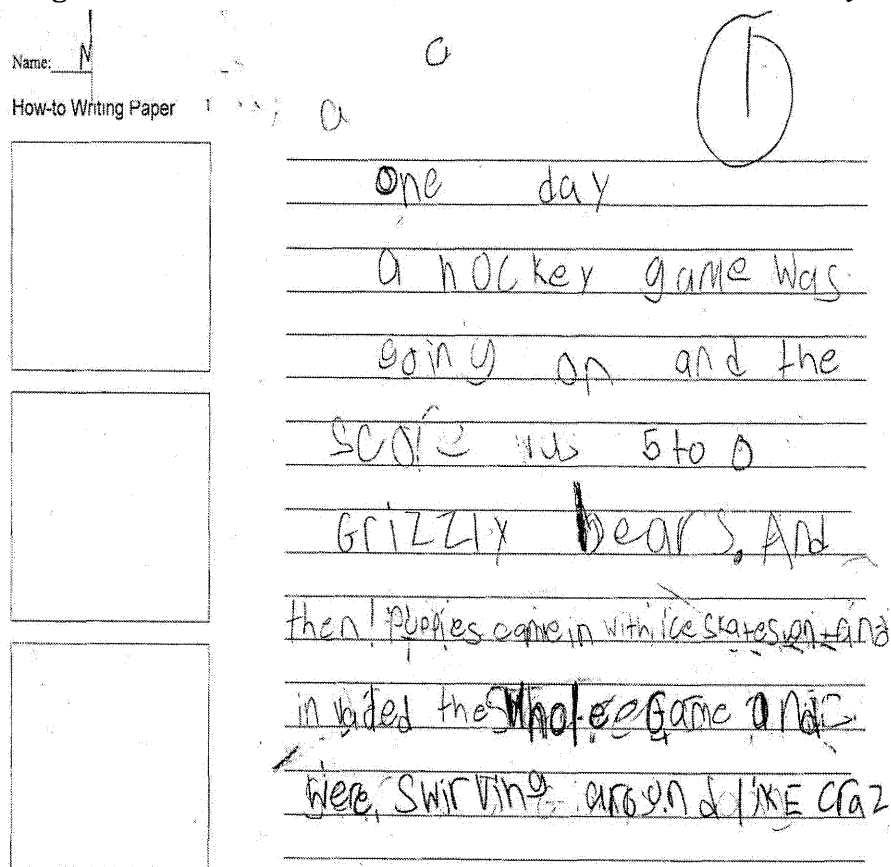 Name: N
a
1
How-to Writing Paper
a
One day
a hockey game was
going on and the
score wus 5 to 0
Grizzly bears. And
then! puppies came in with ice skates on and
in vaded the Whole Game and
were swirving around like craz